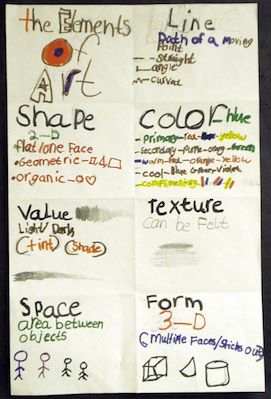 the Elements
Of
Art
Line
Path of a Moving
Point
Straight
angle
curved
Shape
2-D
flat/one Face
Geometric
organic
Color
blue
primary-red-blue-yellow
Secondary-Purple-orange-green
warm-red-orange-Yellow
cool-Blue Green-Violet
complimentary
Value
Light/Dark
(tint) (Shade)
Texture
Can be Felt
Space
area between
objects
Form
3-D
Multiple Faces/Sticks Out